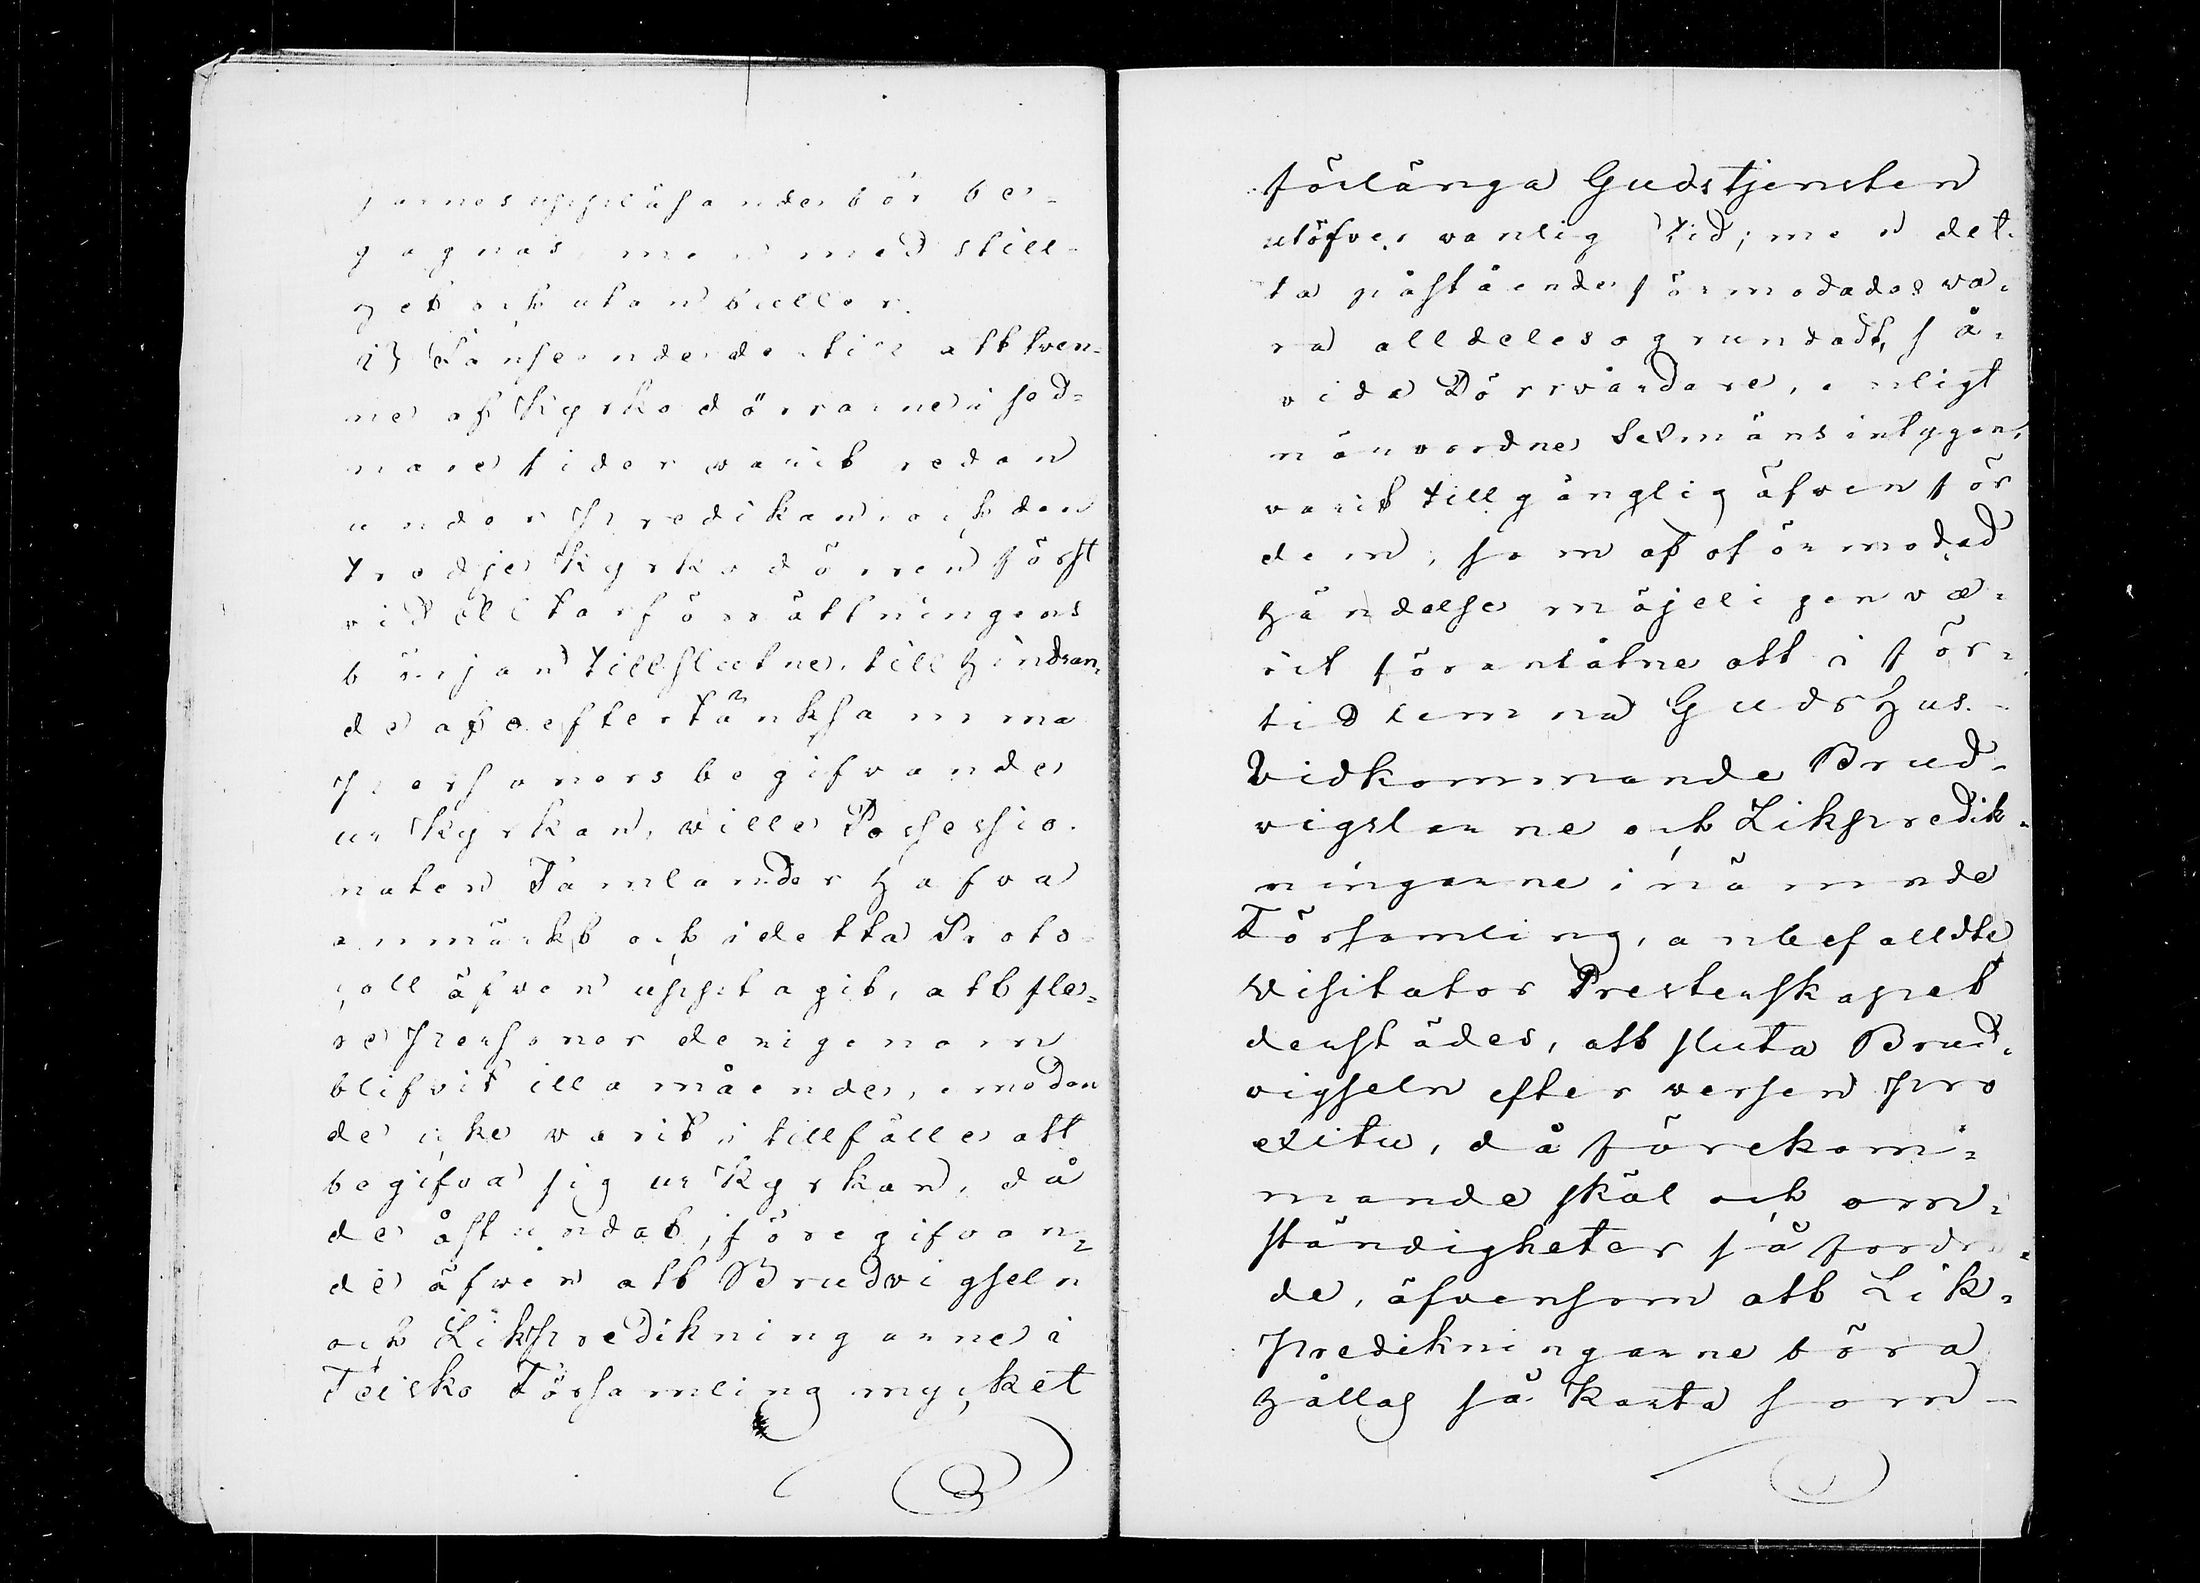 garnes uppläsande bör be-
gagnas, men med still-
het och utan buller.
i) I anseende dertill att tven-
ne af Kyrkodörrarne i sed-
nare tider varit redan
under Predikan och den
tredje Kyrkodörren först
vid Altarförrättningens
början tillslutne, till hindran-
de af oeftertänksamma
Personers begifvande
ur Kyrkan, ville Possessio-
naten Tamlander hafva
anmärkt och i detta Proto-
coll äfven upptagit, att fle-
re Personer derigenom
blifvit illamående, emedan
de icke varit i tillfälle att
begifva sig ur Kyrkan, då
de åstundat, föregifvan-
de äfven att Brudvigseln
och Likpredikningarne i
Teisko Församling mycket
förlänga Gudstjensten
utöfver vanlig tid; men det-
ta påstående förmodades va-
ra alldeles ogrundadt, så-
vida Dörrvårdare, enligt
närvordne Sexmäns intygan,
varit tillgänglig äfven för
dem, som af oförmodad
händelse möjeligen va-
rit föranlåtne att i för-
tid lemna Guds Hus. -
Vidkommande Brud-
vigslarne och Likpredik-
ningarne i nämnde
Församling, anbefalldte
Visitator Presterskapet
derstädes, att sluta Brud-
vigseln efter versen pro
exitu, då förekom-
mande skäl och om-
ständigheter så fordra-
de, äfvensom att Lik-
predikningarne böra
hållas så korta som -